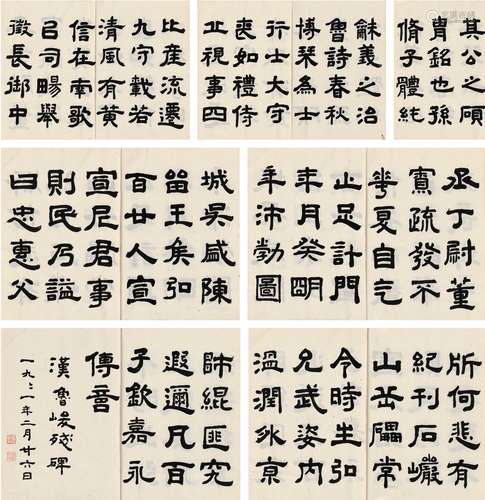 其公之碩
胄銘也孫
脩子體純
龢義之治
魯詩春秋
博琹為士
行士大守
喪如禮侍
止視事四
比產流遷
九守載若
清風有黄
信在南歌
召司暘舉
徵長御中
丞丁尉董
賓疏發不
華夏自乞
止足計門
年月癸明
年沛勒圖
城吳咸陳
留王矦弘
百廿人宣
宣尼君事
則民乃謚
曰忠惠父
所何悲有
紀刊石巖
山岳礪常
令時生弘
兄武姿內
溫潤外京
師緄匪究
遐邇凡百
子欽嘉永
傳善
漢魯峻殘碑
一九一年二月廿六日